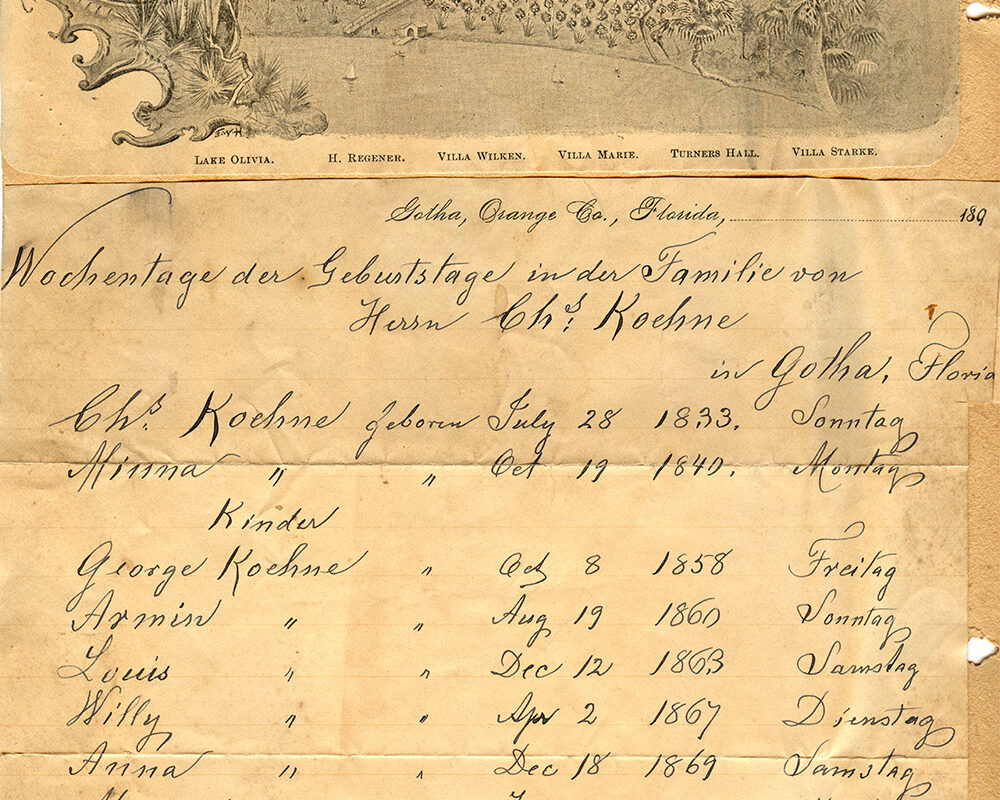 LAKE OLIVIA. H. REGENER. VILLA WILKEN. VILLA MARIE. TURNERS HALL. VILLA STARKE.
Gotha, Orange Co., Florida, 189
Wochentage der Geburtstage in der Familie von
Herrn Chs. Koehne
in Gotha, Floria
Chs. Koehne geboren July 28 1833. Sonntag
Minna " " Oct 19 1840. Montag
Kinder
George Koehne " Oct 8 1858 Freitag
Armin " " Aug 19 1860 Sonntag
Louis " " Dec 12 1863 Samstag
Willy " " Apr 2 1867 Dienstag
Anna " " Dec 18 1869 Samstag